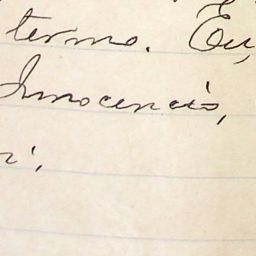 termo. Eu,
Innocencio,
i,